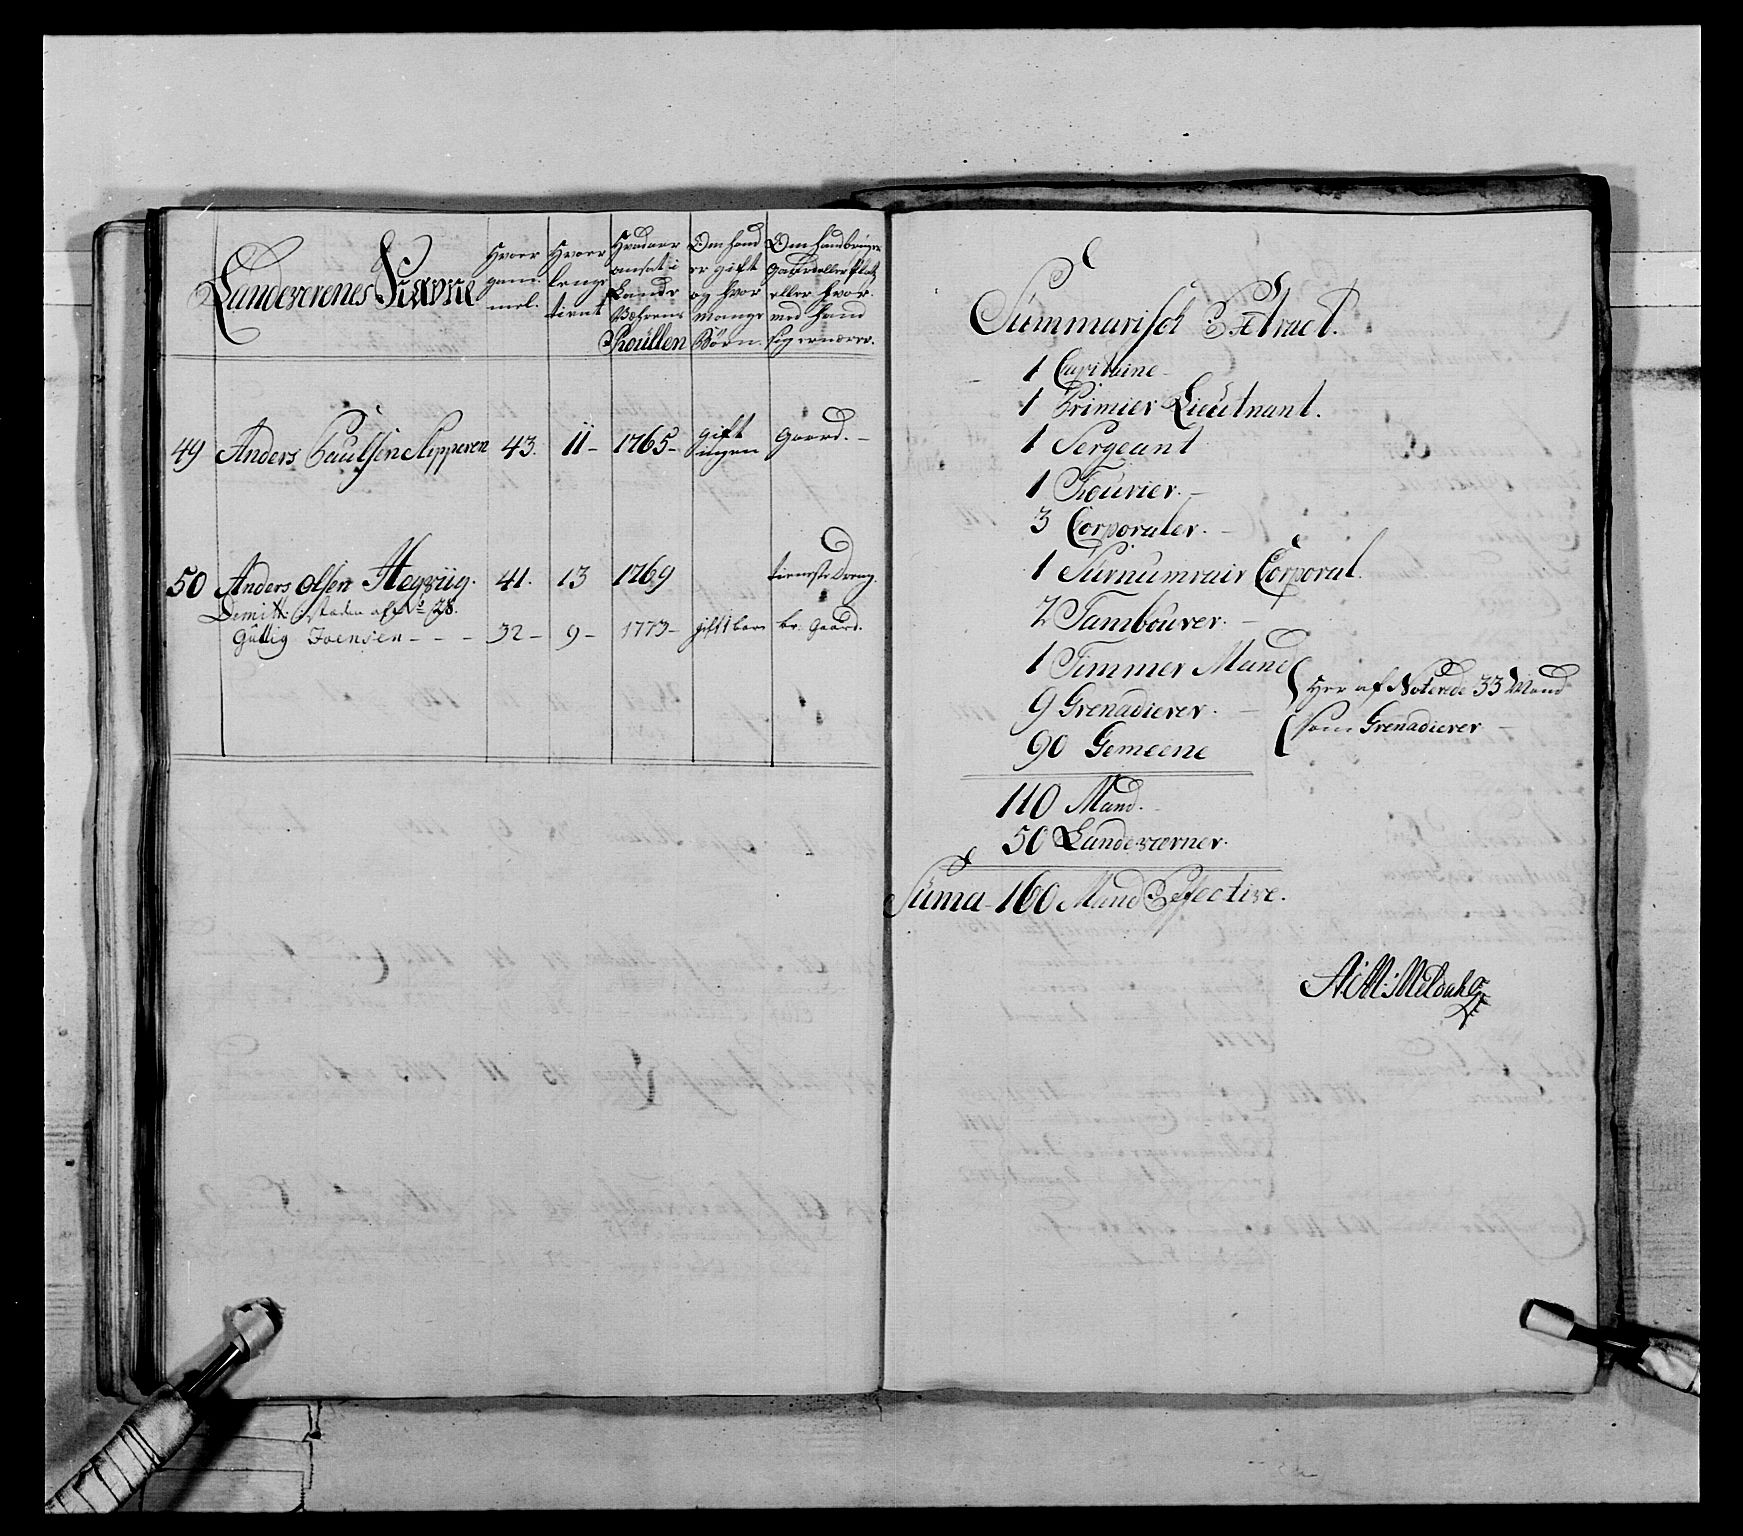 Landeverenes Navne
Hvor gam mel.
Hvor lenge tient
Hvad aar ansat i Lande Wæhrens Roullen
Om hand er gift og hvor mange Børn.
Om hand bruger gaard eller Platz eller hvor med hand sig ernærer.
49 Anders Paulsen Slipperen 43. 11- 1765- gift ingen Gaard.-
50 Anders Olsen 41. 13 1769 tieneste Dreng.
Demitt: i steden af No 28.
Gullig Joensen - - - 32- 9- 1773- gift 1 barn br: Gaard.
Summarisch Extract.
1 Capitaine-
1 Primier Lieutnant.
1 Sergeant
1 Fourier.-
3 Corporaler.-
1 Surnumrair Corporal.
2 Tambourer.-
1 Timmer Mand
9 Grenadierer.-
90 Gemeene
{ Her af Noterede 33 Mand
{ som Grenadierer-
110 Mand.-
50 Landeværner.
Suma- 160 Mand Effective.
A: M: Meldahl